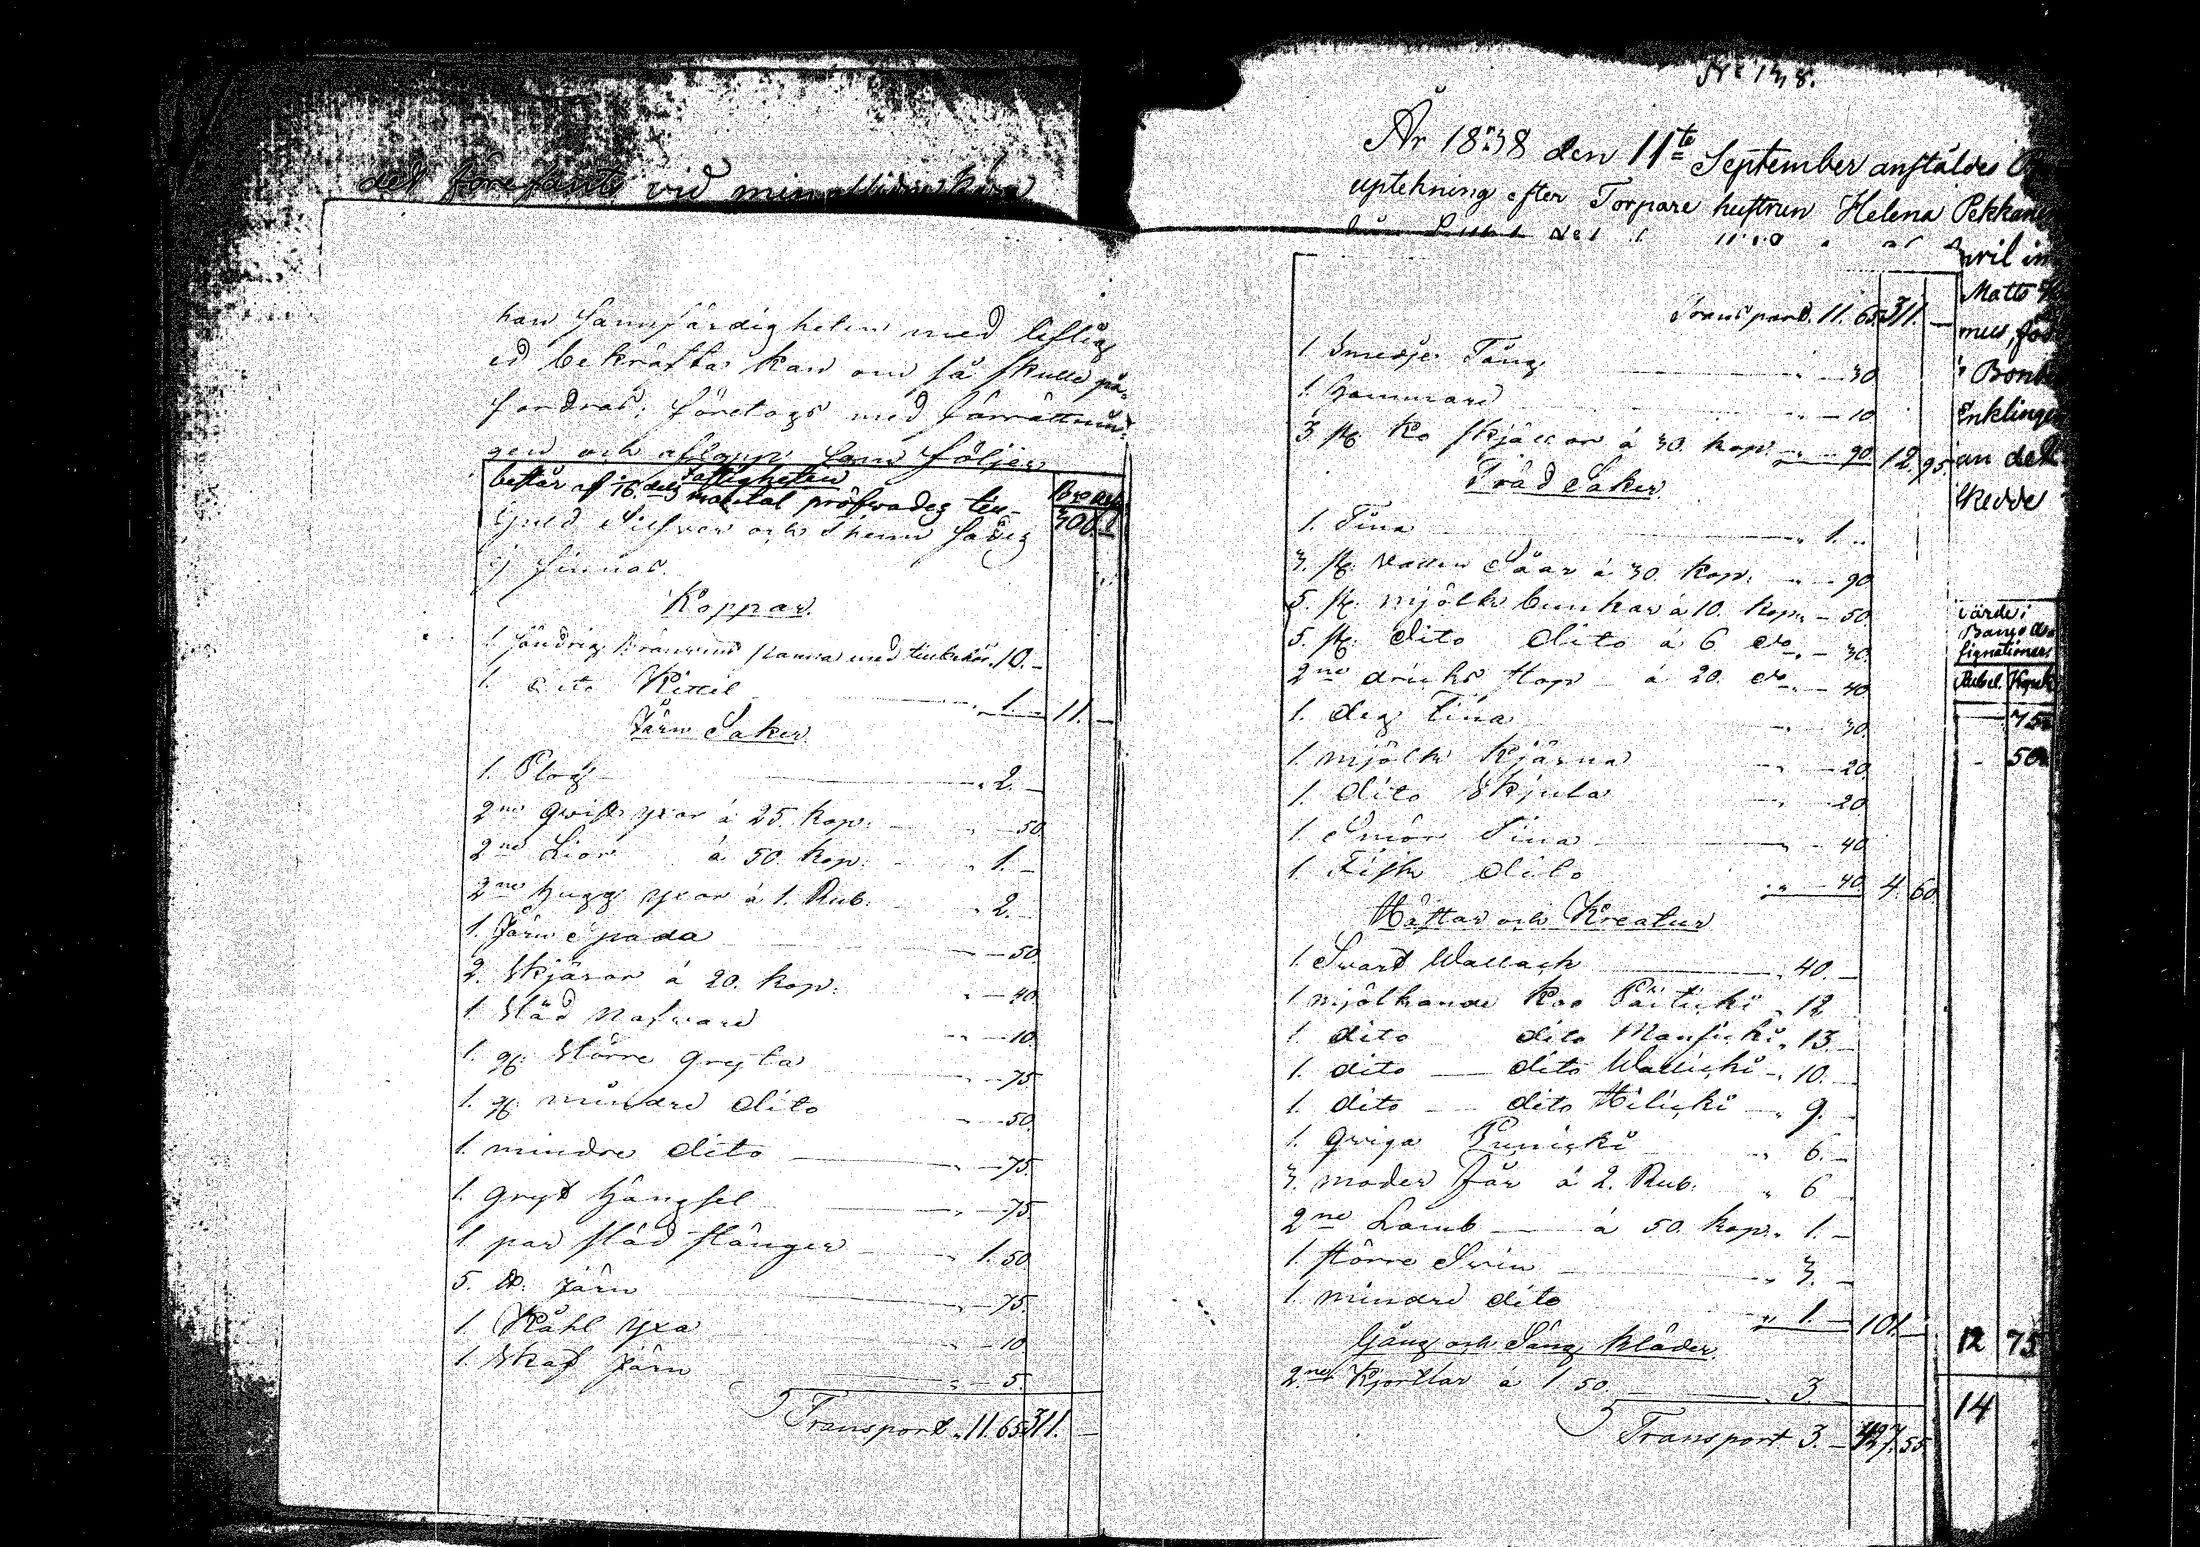 det förefants vid min
han sannfärdigheten med liflig
ed bekräfta kan om så skulle på-
fordras; företogs med förrättnin-
gen och aflopp som följer
Fastigheten
består af 16 dels mantal pröfvades till
300.
Guld Silfver och Theun saker
ej finnas.
Koppar.
1. Söndrig Bränvins panna med tilbehör 10. -
1. dito Kittel 1. - 11. -
Järn Saker
1. Plog 2. -
2ne qvist yxor á 25. kop. 50.
2ne Lior á 50 kop. 1. -
2ne hugg yxor á 1. Rub. 2. -
1. Järn Spada 50.
2. Skjäror á 20. kop. 40.
1. Städ Nafvare 10.
1. gl. Större gryta 75.
1. gl. mindre dito 50.
1. mindre dito 75.
1. gryt hängsel 75.
1. par städ stänger 1. 50.
5. lb. Järn 75.
1. Kåhl yxa 10.
1. Skaf Järn 5.
Transport 11. 65. 311. -
No 138.
År 1838 den 11te September anstäldes
uptekning efter Torpare hustrun Helena Pekkanen
Transport. 11. 65. 311. -
1. Smedje Tång 30.
1. hammare 10.
3. st. Ko skjällor á 30. kop. 90. 12. 95.
Träd Saker
1. Tina 1. -
3. st. vatten Såar á 30. kop. 90.
5. st. mjölk bunkar á 10. kop. 50.
5. st. dito dito á 6 do 30.
2ne dricks Stop á 20. do 40.
1. deg Tina 30.
1. mjölk Kjärna 20.
1. dito Skjula 20.
1. Smör Tina 40.
1. Fisk dito 40. 4. 60.
Hästar och Kreatur
1. Svart Wallack 40. -
1. mjölkande Koo Päiticki 12
1. dito dito Mansicki 13. -
1. dito dito Wallicki 10. -
1. dito dito Hilicki 9. -
1. qviga Punicki 6. -
3. moder Får á 2. Rub. 6
2ne Lamb á 50. kop. 1. -
1. större Svin 3. -
1. mindre dito 1. - 101. -
Gång och Säng kläder.
2ne Kjortlar á 1. 50. 3.
Transport 3. - 427. 55.
April in
Matts
mus, föd
Bond
Enklinge
än det
skedde
värde i
Banco As-
signationer
Rubel. Kopek
75
50
12 75
14